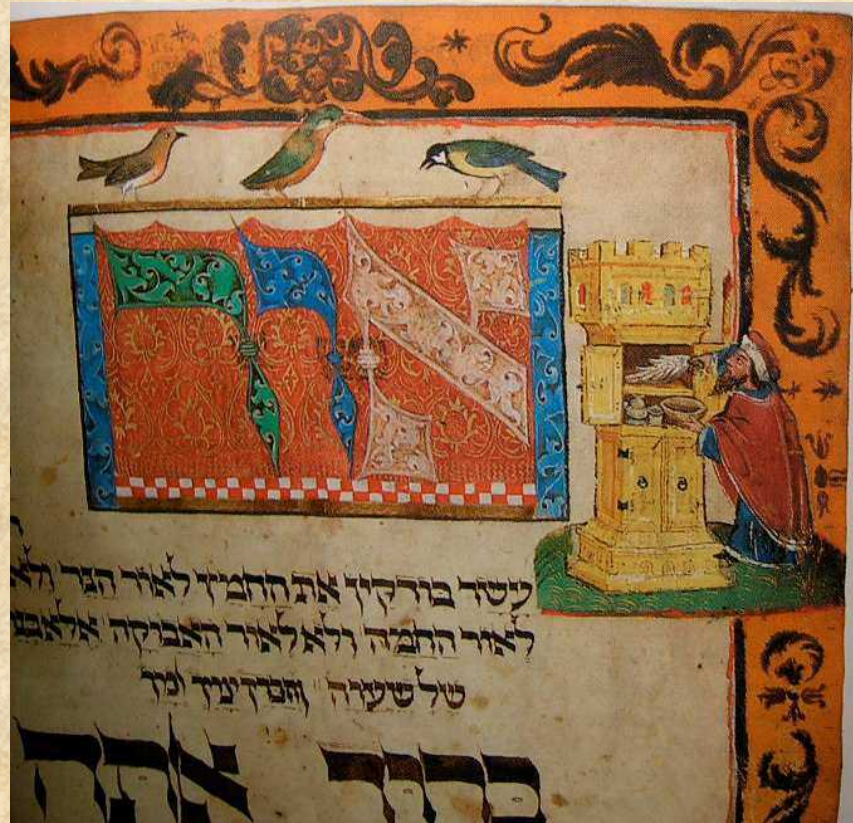 אור
עשר בודקין את החמץ לאור הנר ולא
לאור החמה ולא לאור האבוקה אלא
של שעוה
ברוך אתה